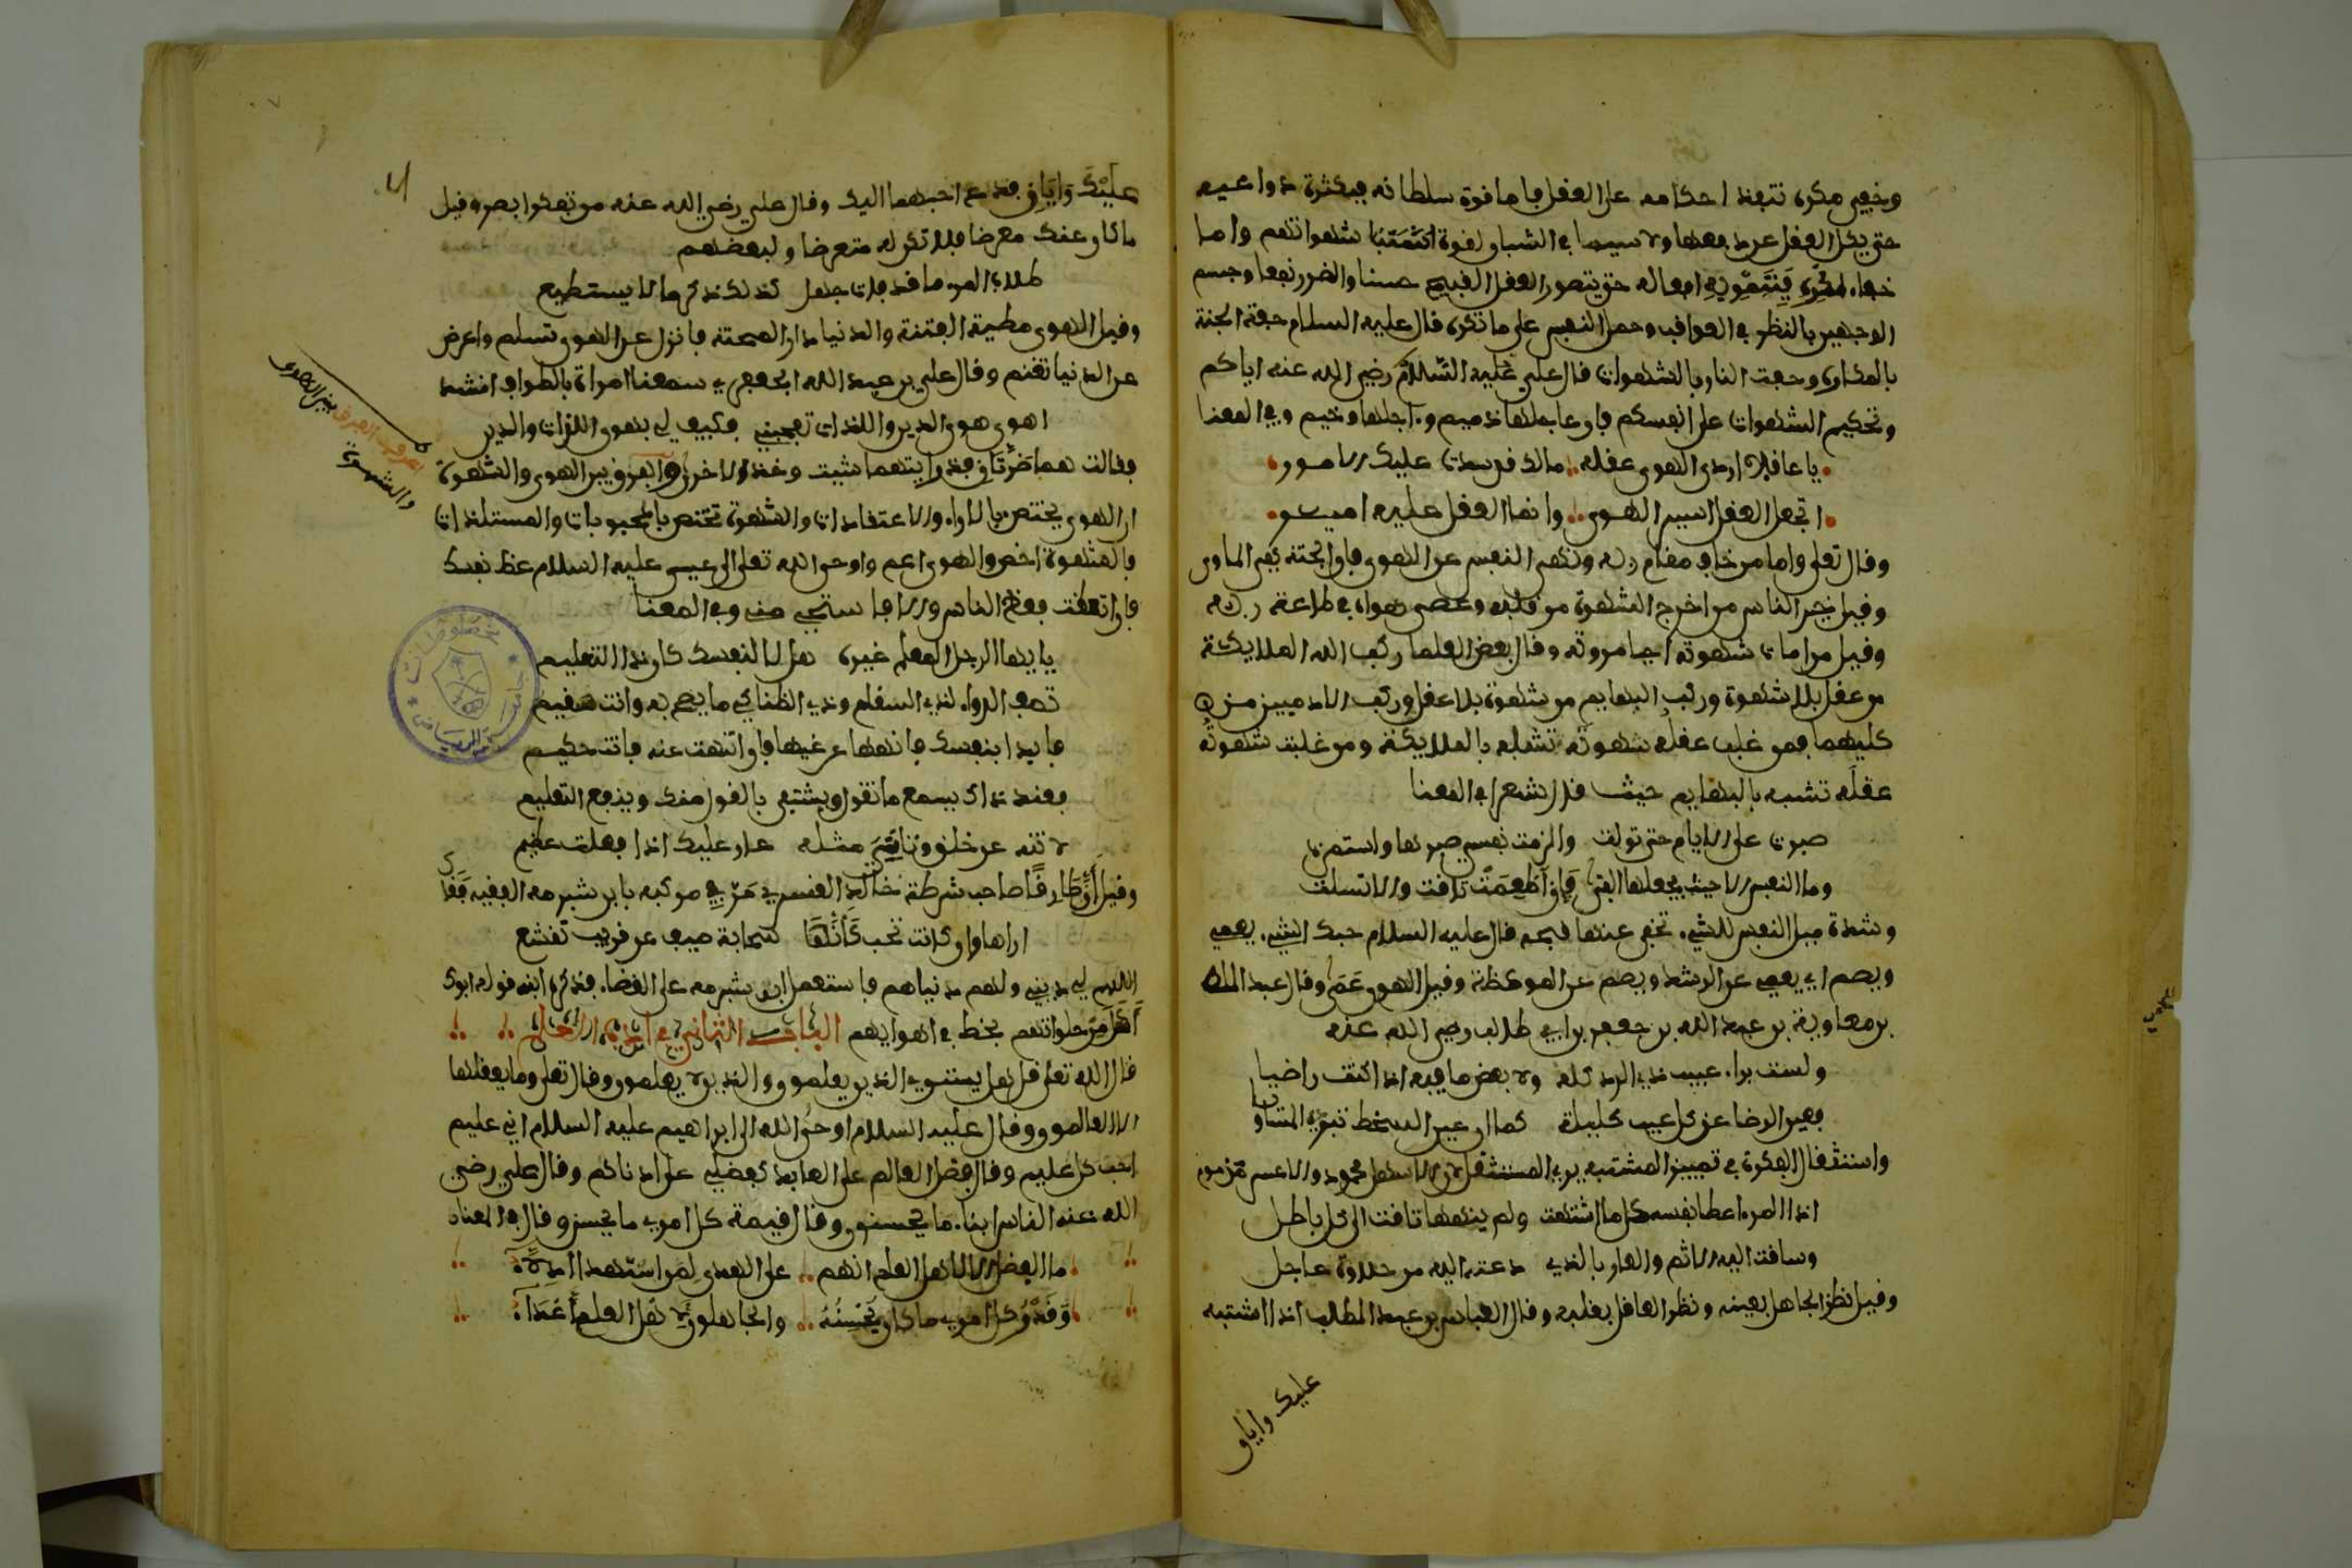 وخفي مكره تنبعث احكامه على العقل فاما قوة سلطانه فبكثرة دواعيه
حتى يكل العقل عن دفعها ولا سيما في الشبان لقوة شهواتهم واما
خفاء مكره افعاله حتى يتصور العقل القبيح حسنا والضرر نفعا وحسم
الوجهين بالنظر في العواقب وحمل النفس على ما تكره قال عليه السلام حفت الجنة
بالمكاره وحفت النار بالشهوات قال علي عليه السلام رضي الله عنه اياكم
وتحكيم الشهوات على انفسكم فان عاجلها ذميم وءاجلها وخيم وفي المعنا
يا عاقلا اردى الهوى عقله مالك قد سدت عليك الامور
اتجعل العقل اسير الهوى وانما العقل عليه امير
وقال تعلى واما من خاف مقام ربه ونهى النفس عن الهوى فان الجنة هي الماوى
وقيل خير الناس من اخرج الشهوة من قلبه وعصى هواه في طاعة ربه
وقيل من امات شهوته احيا مروته وقال بعض العلما ركب الله الملايكة
من عقل بلا شهوة وركب البهايم من شهوة بلا عقل وركب الادميين من
كليهما فمن غلب عقله شهوته تشبه بالملايكة ومن غلبت شهوته
عقله تشبه بالبهايم حيث قال شعرا في المعنا
صبرت على الايام حتى تولت والزمت نفسي صبرها واستمرت
وما النفس الا حيث يجعلها الفتى فان اطعمت تاقت والا تسلت
وشدة ميل النفس للشيء تخفي عنها قبحه قال عليه السلام حبك الشيء يعمي
ويصم اي يعمي عن الرشد ويصم عن الموعظة وقيل الهوى عمى وقال عبد الله
بن معاوية بن عبد الله بن جعفر بن ابي طالب رضي الله عنه
ولست براء عيب ذي الود كله ولا بعض ما فيه اذا كنت راضيا
فعين الرضا عن كل عيب كليلة كما ان عين السخط تبدي المساويا
واستثقال الفكرة في تمييز المشتبه
اذا المرء اعطا نفسه كل ما اشتهت ولم ينهها تاقت الى كل باطل
وساقت اليه الاثم والعار بالذي دعته اليه من حلاوة عاجل
وقيل نظر الجاهل بعينه ونظر العاقل بقلبه وقال العباس بن عبد المطلب اذا اشتبه
عليك وايان
عليك وايان فدع احبهما اليك وقال علي رضي الله عنه من تفكر ابصر وقيل
ما كان عنك معرضا فلا تكن له متعرضا ولبعضهم
طلاب المرء ما قد فات جهل كذلك ذكره ما لا يستطيع
وقيل الهوى مطية الفتنة والدنيا دار المحنة فانزل عن الهوى تسلم واعرض
عن الدنيا تغنم وقال علي بن عبد الله الجعفري سمعتنا امراة بالطواف انشد
اهوى هوى الدين واللذات تعجبني فكيف لي بهوى اللذات والدين
فقالت هما ضرتان فدع ايتهما شيت وخذ الاخرى والفرق بين الهوى والشهوة
ان الهوى يختص بالاراء والاعتقادات والشهوة تختص بالمحبوبات والمستلذات
فالشهوة اخص والهوى اعم واوحى الله تعلى الى عيسى عليه السلام عظ نفسك
فان اتعظت فعظ الناس والا فاستحي مني وفي المعنا
يا ايها الرجل المعلم غيره هل لا لنفسك كان ذا التعليم
تصف الدواء لذي السقام وذي الضنا كي ما يصح به وانت سقيم
فابدا بنفسك فانهها عن غيها فان انتهت عنه فانت حكيم
فعند ذاك يسمع ما تقول ويشتفى بالقول منك وينفع التعليم
لا تنه عن خلق وتاتي مثله عار عليك اذا فعلت عظيم
وقيل ان طارقا صاحب شرطة خالد القسري مر في موكبه بابن شبرمة الفقيه فقال
اراها وان كانت تحب كانها سحابة صيف عن قريب تقشع
اللهم لي ديني ولهم دنياهم فاستعمل ابن شبرمة على القضاء فذكره ابنه قوله ابوك
اكل من حلوائهم فحط في اهوايهم الباب الثاني في ادب العلم
قال الله تعلى قل هل يستوي الذين يعلمون والذين لا يعلمون وقال تعلى وما يعقلها
الا العالمون وقال عليه السلام اوحى الله الى ابراهيم عليه السلام اني عليم
احب كل عليم وقال فضل العالم على العابد كفضلي على ادناكم وقال علي رضي
الله عنه الناس ابناء ما يحسنون وقال قيمة كل امرئ ما يحسن وقال في المعنا
ما الفضل الا لاهل العلم انهم على الهدى لمن استهدى ادلاء
وقدر كل امرئ ما كان يحسنه والجاهلون لاهل العلم اعداء
اعرف الفرق بين الهوى
والشهوة